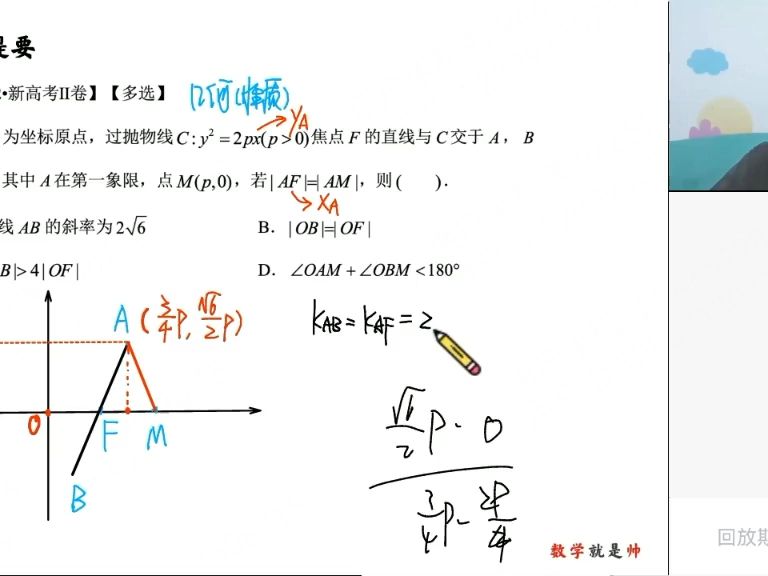 是要
•新高考II卷】【多选】
几何(性质)
yA
为坐标原点，过抛物线C:y²=2px(p>0)焦点 F 的直线与 C 交于 A，B
其中 A 在第一象限，点 M(p,0)，若|AF|=|AM|，则(    ).
xA
线 AB 的斜率为2√6
B. |OB|=|OF|
B|>4|OF|
D. ∠OAM+∠OBM<180°
A (3/4 p, √6/2 p)
K_AB = K_AF = 2
√6/2 p - 0
3/4 p - 2p/4
O
F
M
B
数学就是帅
回放期